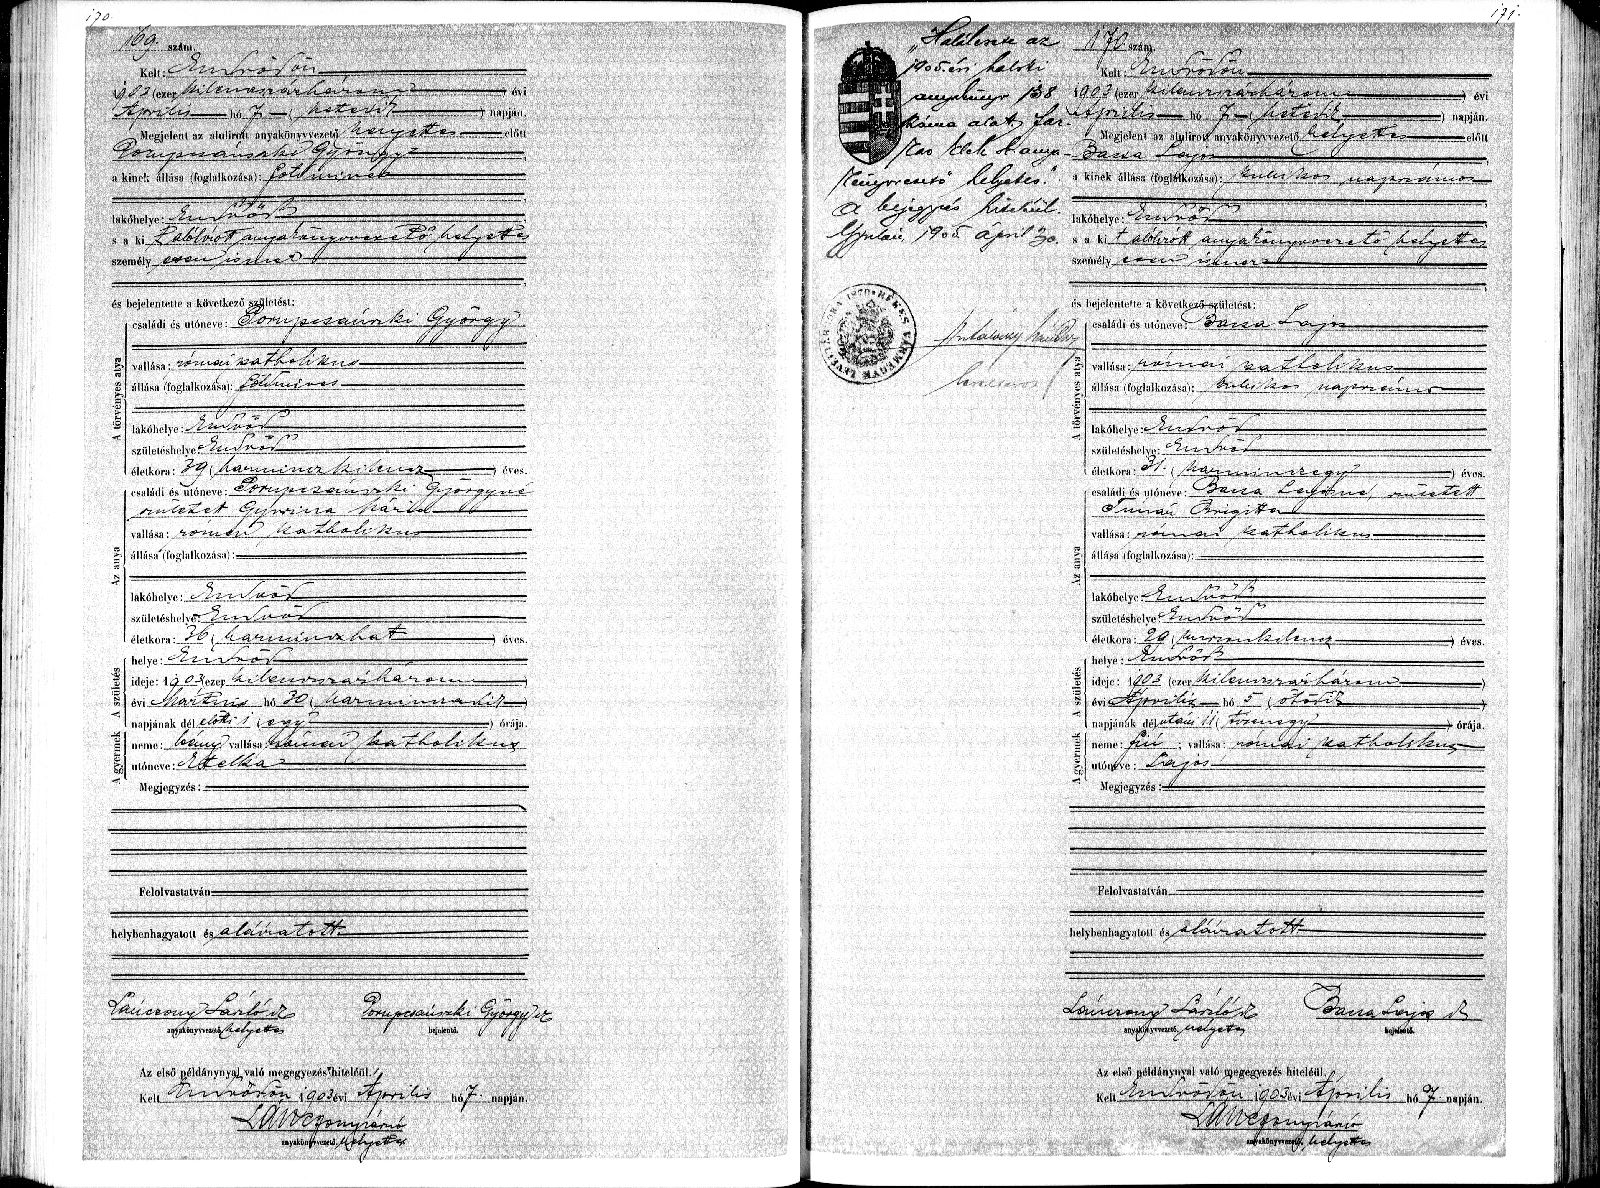 170
169. szám.
Kelt: Endrődön
1903 (ezer kilenczszázhárom) évi
Április hó 7 (hetedik) napján.
Megjelent az alulirott anyakönyvvezető helyettes előtt
Porupcsánszki György
a kinek állása (foglalkozása): földmives
lakóhelye: Endrőd
s a ki t alólirott anyakönyvvezető helyettes
személyesen ismer
és bejelentette a következő születést:
A törvényes atya
családi és utóneve: Porupcsánszki György
vallása: római katholikus
állása (foglalkozása): földmives
lakóhelye: Endrőd
születéshelye: Endrőd
életkora: 39 (harminczkilencz) éves.
Az anya
családi és utóneve: Porupcsánszki Györgyné
született Gyurina Mária
vallása: római katholikus
állása (foglalkozása):
lakóhelye: Endrőd
születéshelye: Endrőd
életkora: 36 (harminczhat) éves.
A születés
helye: Endrőd
ideje: 1903 (ezer kilenczszázhárom)
évi Martius hó 30 (harminczadik)
napjának dél előtti 1 (egy) órája.
A gyermek
neme: leány vallása: római katholikus
utóneve: Etelka
Megjegyzés:
Felolvastatván
helybenhagyatott és aláiratott.
Lánczony László sk Porupcsánszki György sk
anyakönyvvezető helyettes bejelentő.
Az első példánynyal való megegyezés hiteléül.
Kelt Endrődön 1903 évi Április hó 7. napján.
anyakönyvvezető helyettes
171.
"Halálesete az
1905. évi halotti
anyakönyv 138
száma alatt
helyettes."
A bejegyzés hiteléül.
Gyulán, 1905. april 30.
BÉKÉS VÁRMEGYE LEVÉLTÁR
170 szám.
Kelt: Endrődön
1903 (ezer kilenczszázhárom) évi
Április hó 7 (hetedik) napján.
Megjelent az alulirott anyakönyvvezető helyettes előtt
Bacsa Lajos
a kinek állása (foglalkozása): kubikos napszámos
lakóhelye: Endrőd
s a ki t alólirott anyakönyvvezető helyettes
személyesen ismer
és bejelentette a következő születést:
A törvényes atya
családi és utóneve: Bacsa Lajos
vallása: római katholikus
állása (foglalkozása): kubikos napszámos
lakóhelye: Endrőd
születéshelye: Endrőd
életkora: 31. (harminczegy) éves.
Az anya
családi és utóneve: Bacsa Lajosné, született
Timár Brigitta
vallása: római katholikus
állása (foglalkozása):
lakóhelye: Endrőd
születéshelye: Endrőd
életkora: 29 (huszonkilencz) éves.
A születés
helye: Endrőd
ideje: 1903 (ezer kilenczszázhárom)
évi Április hó 5 (ötödik)
napjának dél utáni 11 (tizenegy) órája.
A gyermek
neme: fiú; vallása: római katholikus
utóneve: Lajos
Megjegyzés:
Felolvastatván
helybenhagyatott és aláiratott
Lánczony László sk Bacsa Lajos sk
anyakönyvvezető helyettes bejelentő.
Az első példánynyal való megegyezés hiteléül.
Kelt Endrődön 1903 évi Április hó 7 napján.
anyakönyvvezető helyettes